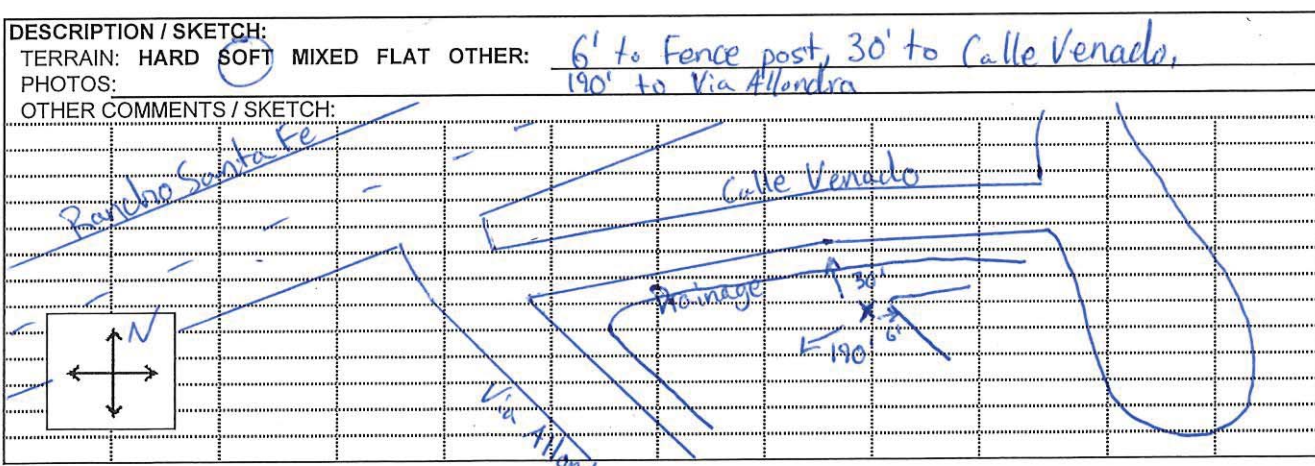 DESCRIPTION / SKETCH:
TERRAIN: HARD SOFT MIXED FLAT OTHER: 6' to Fence post, 30' to Calle Venado,
PHOTOS: 190' to Via Allondra
OTHER COMMENTS / SKETCH:
Rancho Santa Fe
Calle Venado
Drainage
30'
X
6'
190'
N
Via Allon